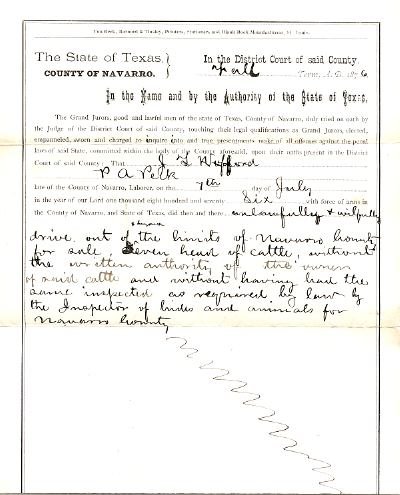 The State of Texas,
COUNTY OF NAVARRO.
In the District Court of said County,
Fall Term, A. D. 1876
In the Name and by the Authority of the State of Texas,
The Grand Jurors, good and lawful men of the state of Texas, County of Navarro, duly tried on oath by
the Judge of the District Court of said County, touching their legal qualifications as Grand Jurors, elected,
empanneled, sworn and charged to inquire into and true presentments make of all offenses against the penal
laws of said State, committed within the body of the County aforesaid, upon their oaths present in the District
Court of said county: That J L Hufford
P A Pelk
late of the County of Navarro, Laborer, on the 7th day of July
in the year of our Lord one thousand eight hundred and seventy Six with force of arms in
the County of Navarro, and State of Texas, did then and there unlawfully & wilfully
drive out of the limits of Navarro County
for sale Seven head of cattle, without
the written authority of the owner
of said cattle and without having had the
same inspected as required by law by
the Inspector of hides and animals for
Navarro County,